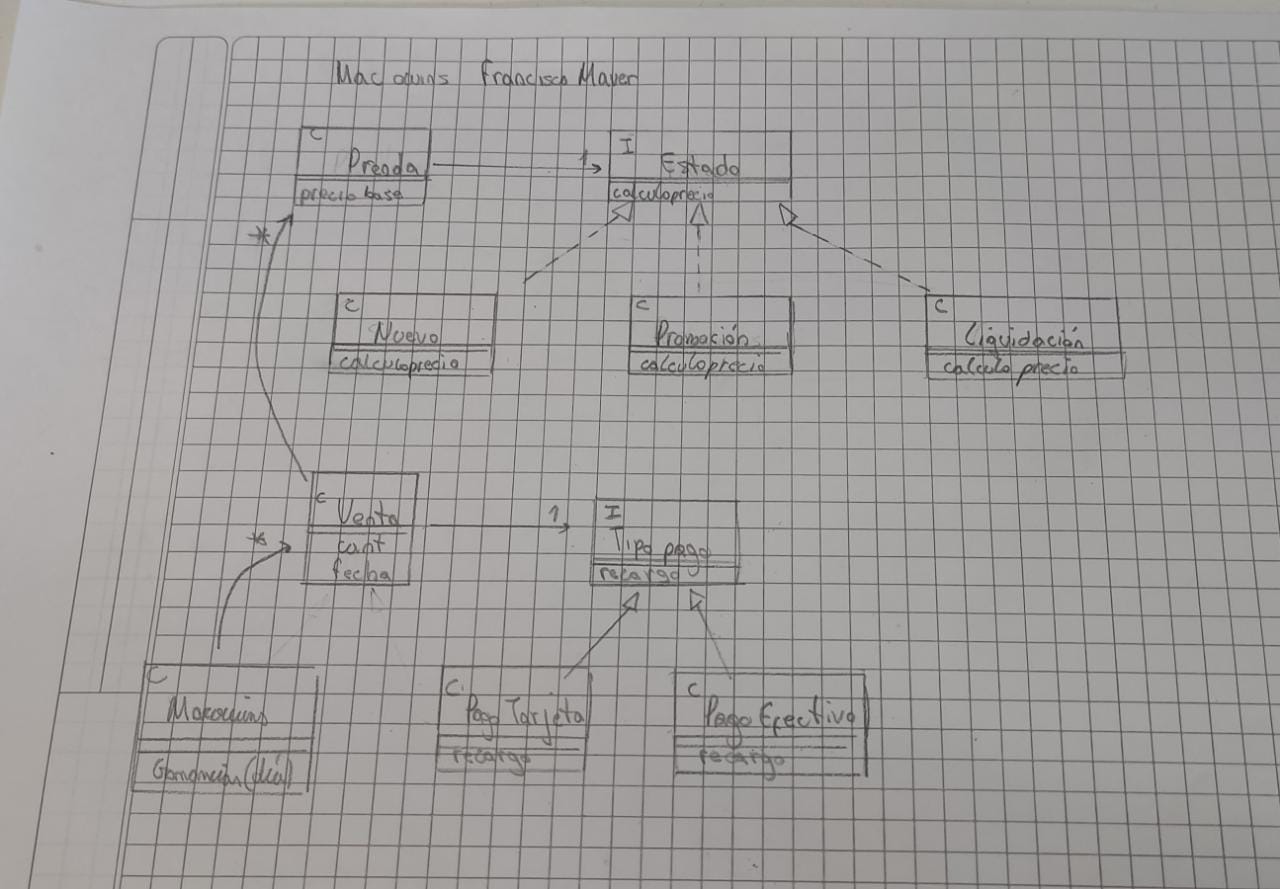 Macowins Francisco Mayer
C
Prenda
precio base
1
I
Estado
calculoprecio
*
C
Nuevo
calculoprecio
C
Promoción
calculoprecio
C
Liquidación
calculo precio
C
Venta
cant
fecha
1
I
Tipo pago
recargo
*
C
Makowins
Ganancia (día)
C
Pago Tarjeta
recargo
C
Pago Efectivo
recargo